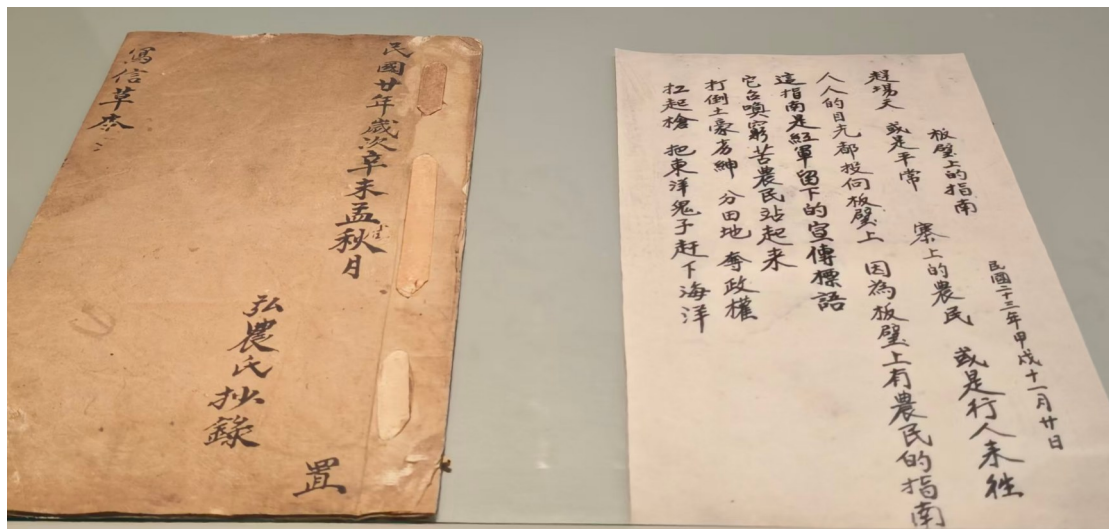 民國廿年歲次辛未孟秋月
弘農氏抄錄
置
寫信草柰
民國二十三年甲戌十一月廿日
板壁上的指南
趕場天 或是平常 寨上的農民 或是行人来往
人人的目光都投向板壁上 因為板壁上有農民的指南
這指南是紅軍留下的宣傳標語
它召喚窮苦農民站起来
打倒土豪劣紳 分田地 奪政權
扛起槍 把東洋鬼子赶下海洋